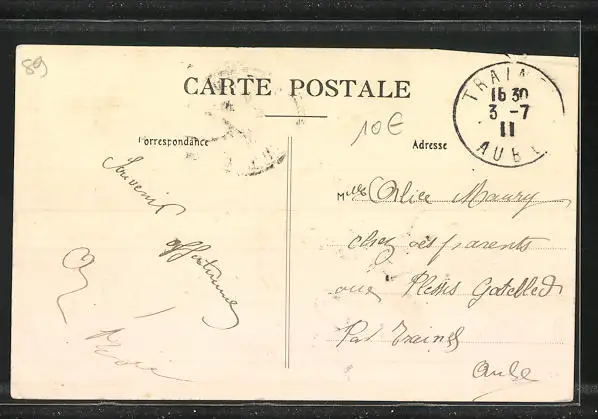 89
CARTE POSTALE
10€
Correspondance
Adresse
TRAINEL
16 30
3 - 7
11
AUBE
Souvenir
affectueux
Mlle Alice Maury
chez ses parents
au Plessis Gatebled
Par Trainel
Aube